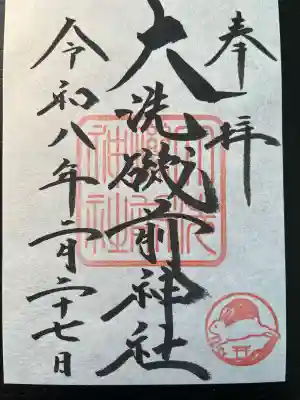 奉拝
大洗磯前神社
令和八年二月二十七日